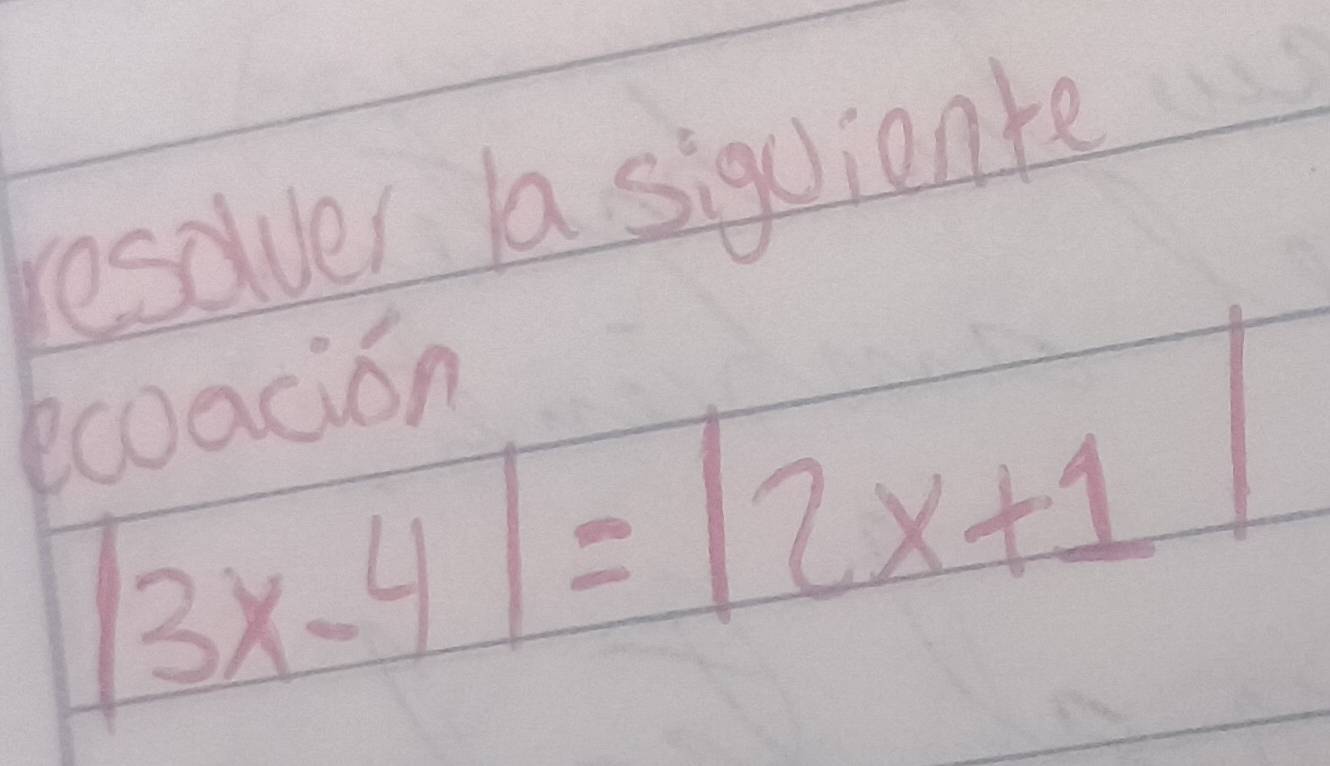 resolver la siguiente
ecoación
|3x-4|=|2x+1|